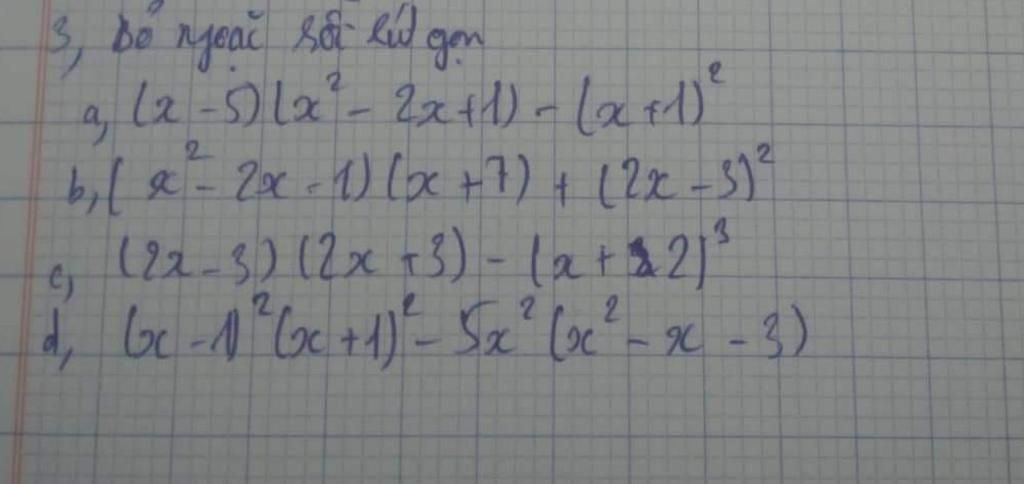 3, Bỏ ngoặc rồi rút gọn
a, (x - 5)(x² - 2x + 1) - (x + 1)²
b, (x² - 2x - 1)(x + 7) + (2x - 3)²
c, (2x - 3)(2x + 3) - (x + 2)³
d, (x - 1)²(x + 1)² - 5x²(x² - x - 3)